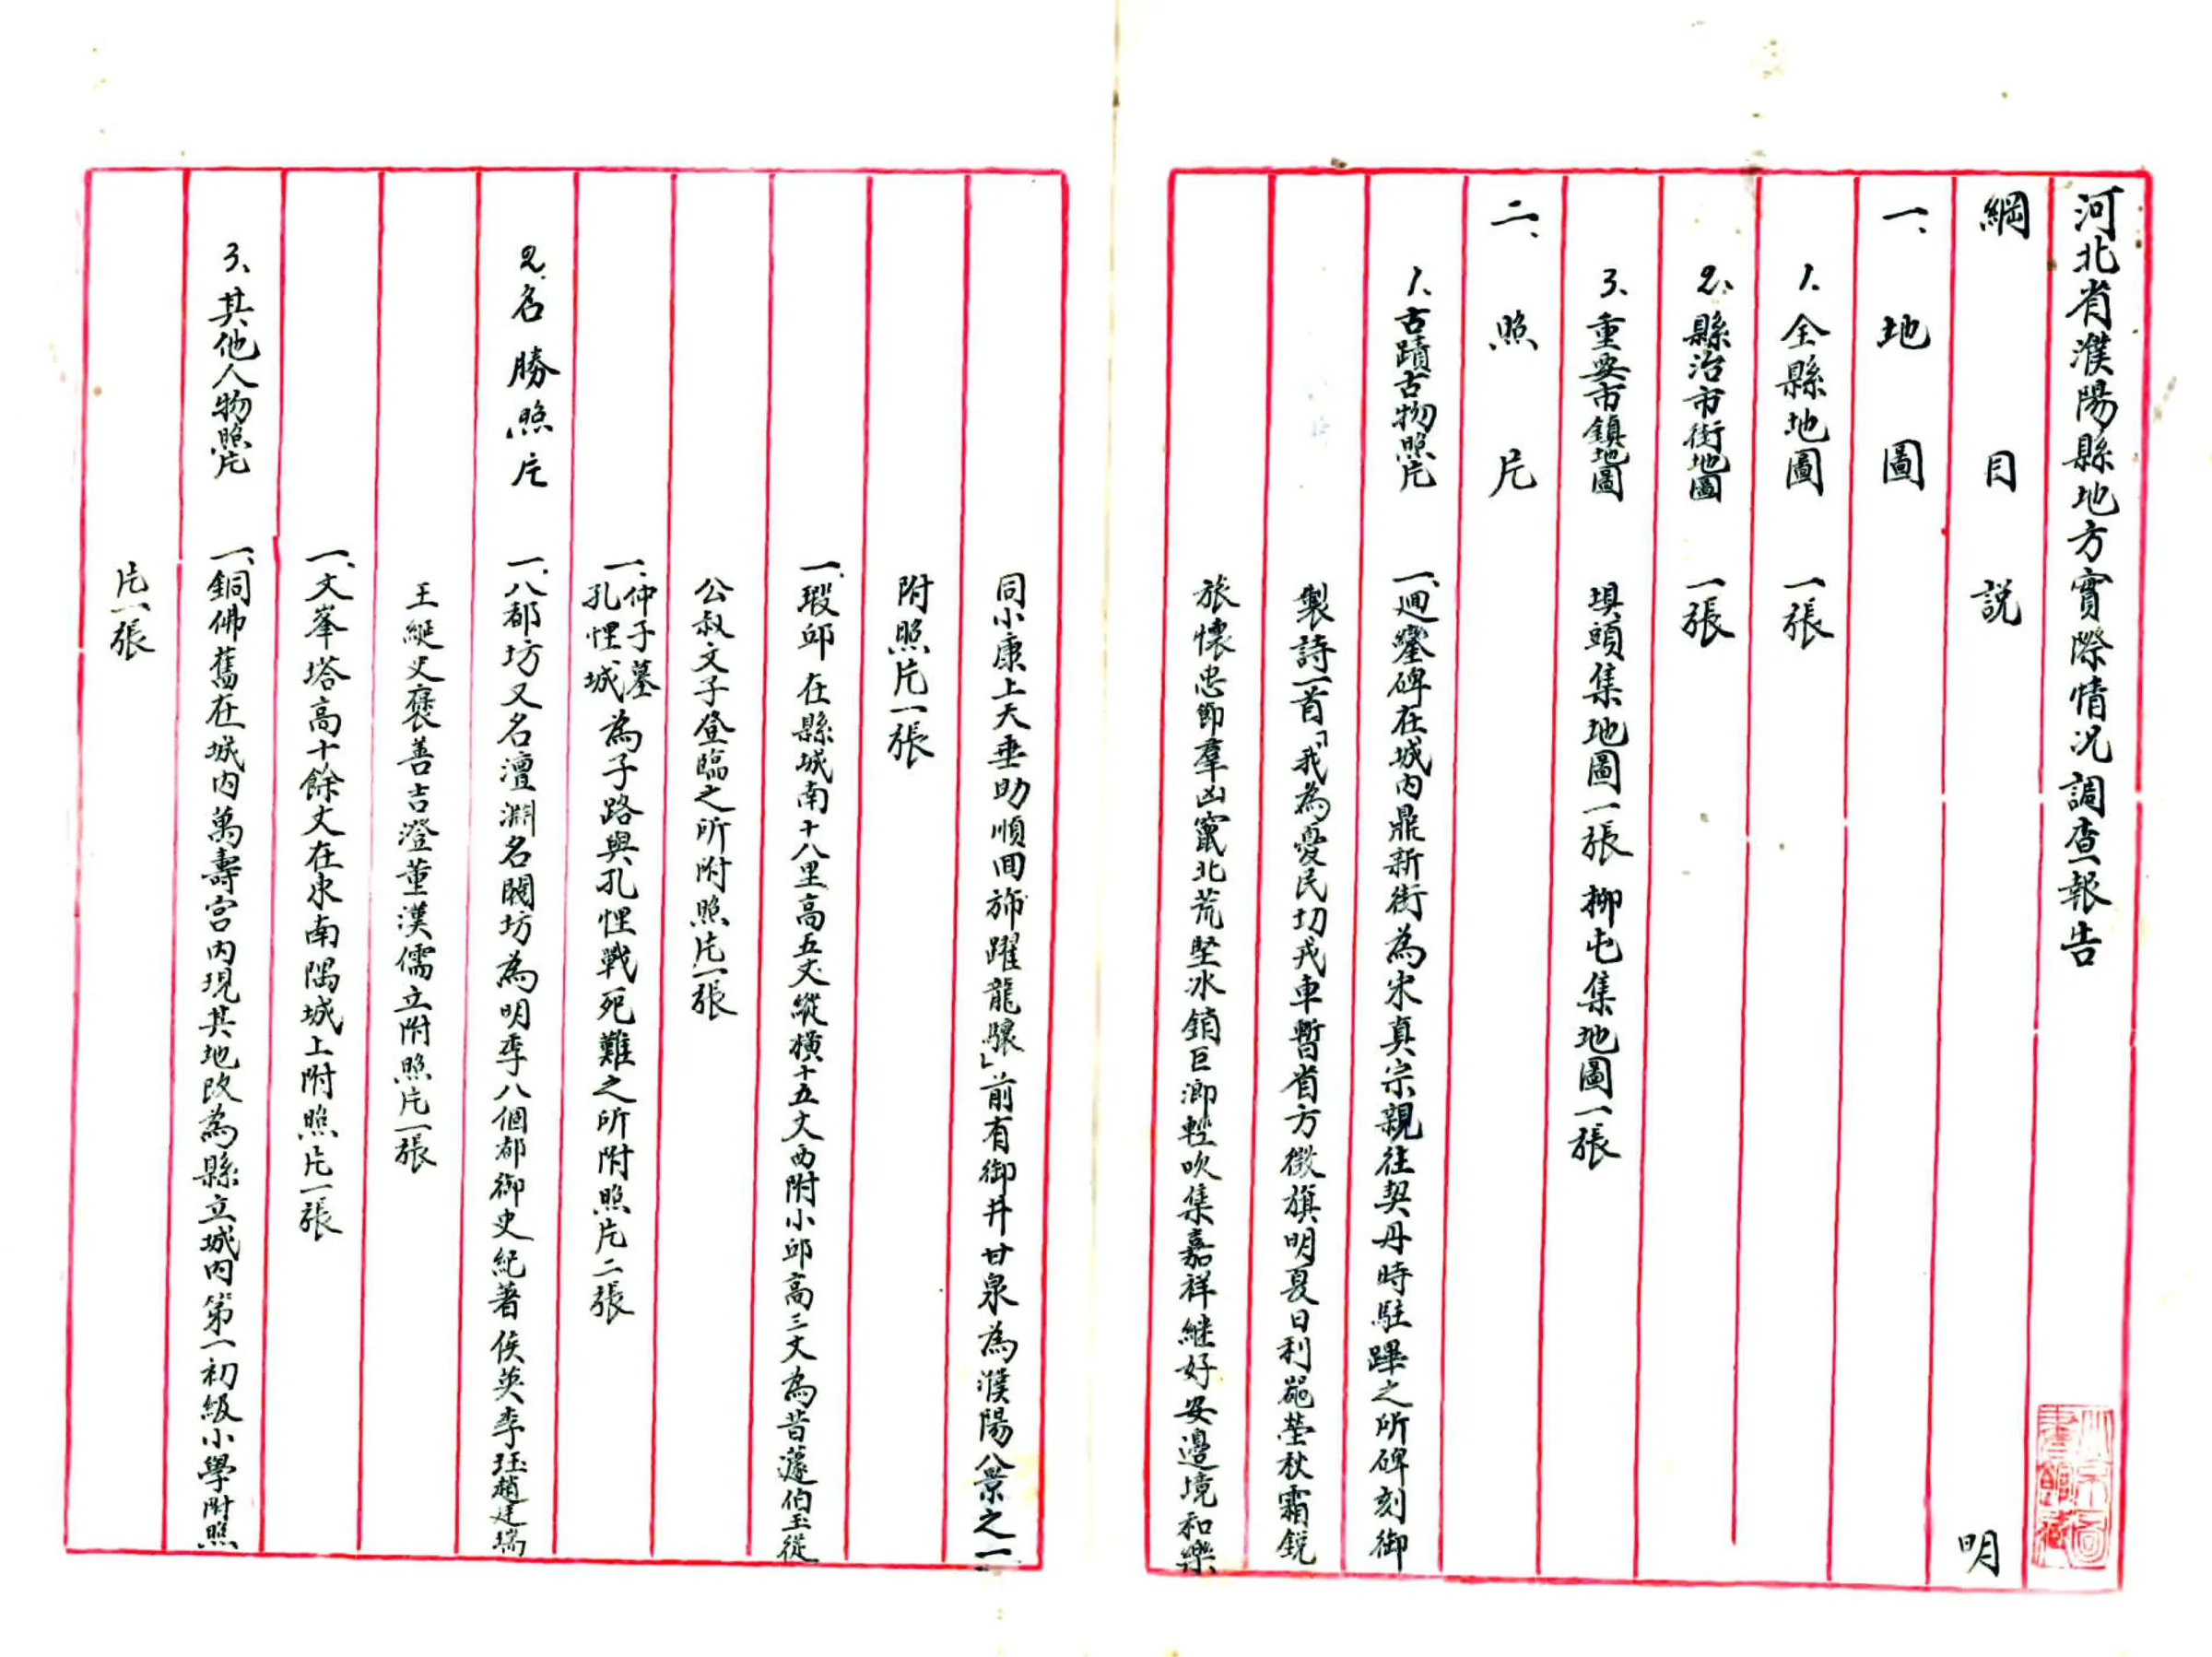 河北省濮陽縣地方實際情况調查報告
綱目 説明
一、地圖
1、全縣地圖 一張
2、縣治市街地圖 一張
3、重要市鎮地圖 垻頭集地圖一張 柳屯集地圖一張
二、照片
1、古蹟古物照片 一、迴鑾碑在城内鼎新街為宋真宗親往契丹時駐蹕之所碑刻御
製詩一首「我為憂民切戎車暫省方徴旗明夏日利器瑩秋霜鋭
旅懷忠節羣凶竄北荒堅冰銷巨浉輕吹集嘉祥継好安邊境和樂
同小康上天垂助順回斾躍龍驤」前有御井甘泉為濮陽八景之一
附照片一張
一、瑕邱在縣城南十八里高五丈縱横十五丈西附小邱高三丈為昔蘧伯玉從
公叔文子登臨之所附照片一張
一、仲子墓孔悝城為子路與孔悝戰死難之所附照片二張
2、名勝照片 一、八都坊又名澶淵名閥坊為明季八個都御史紀著侯英李珏趙廷瑞
王緃史褒善吉澄董漢儒立附照片一張
一、文峯塔高十餘丈在東南隅城上附照片一張
3、其他人物照片 一、銅佛舊在城内萬壽宫内現其地改為縣立城内第一初級小學附照
片一張